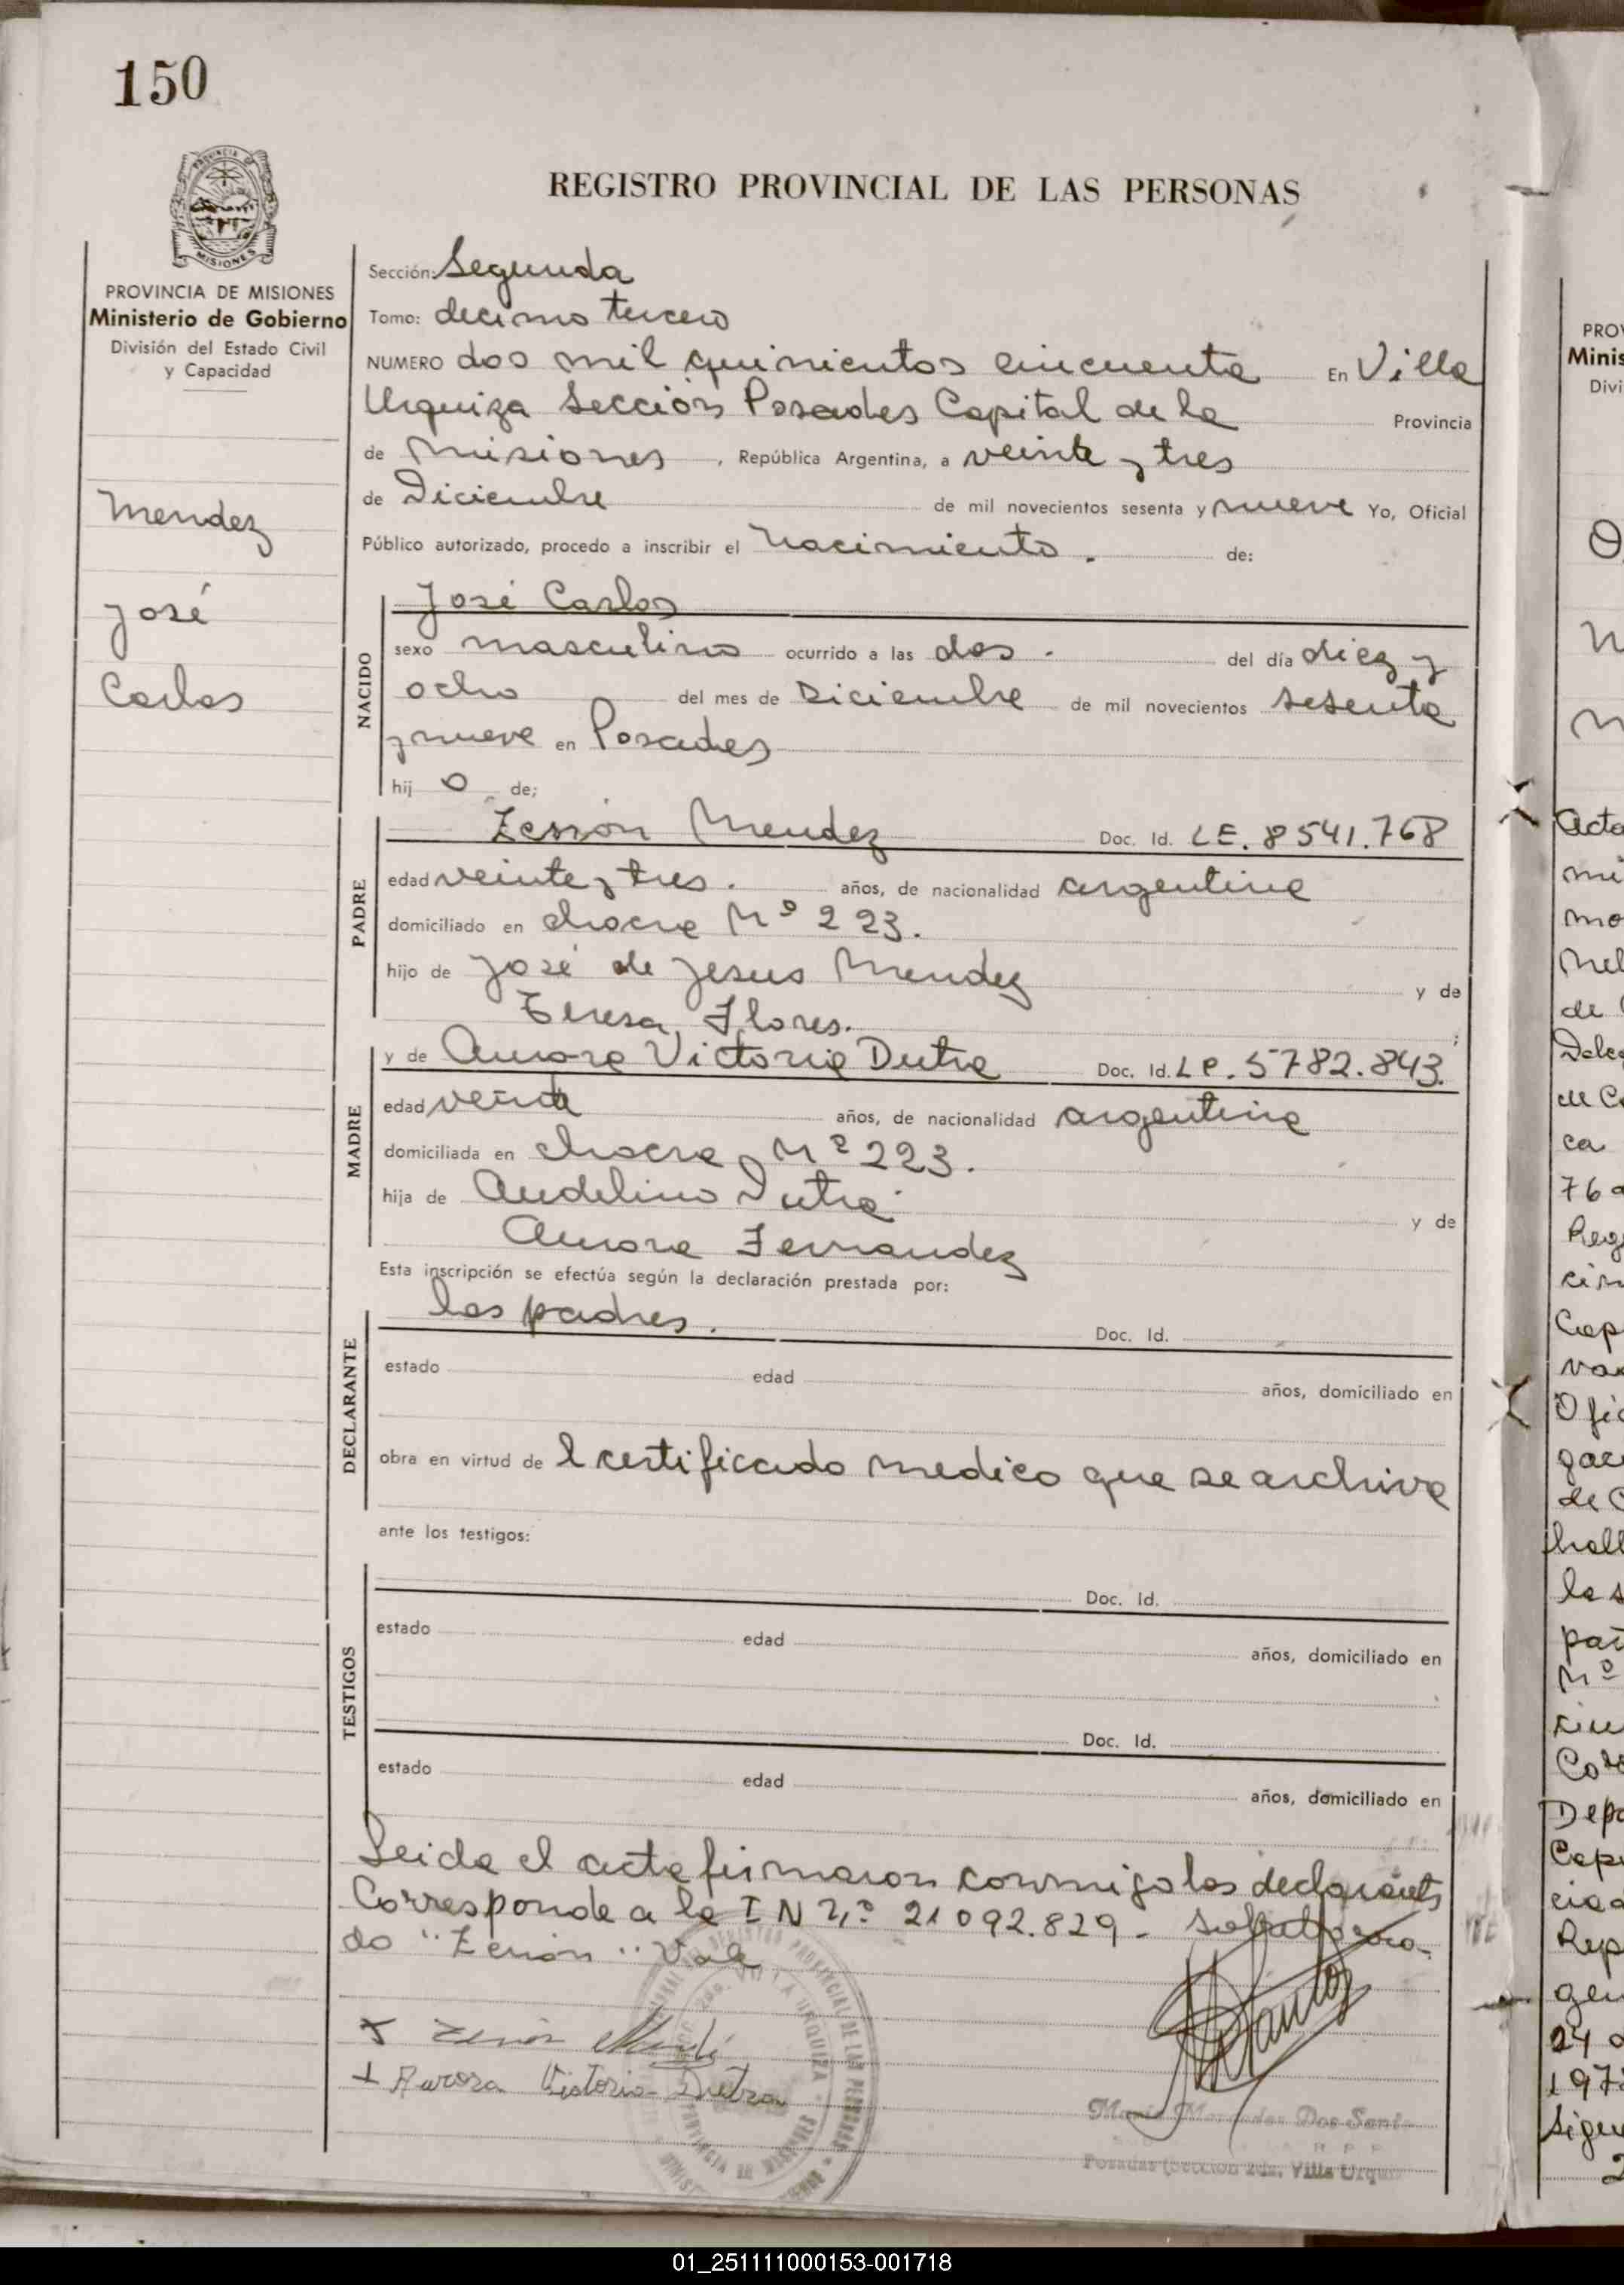 150
REGISTRO PROVINCIAL DE LAS PERSONAS
PROVINCIA DE MISIONES
Ministerio de Gobierno
División del Estado Civil
y Capacidad
Mendez
José
Carlos
Sección: Segunda
Tomo: decimo tercero
NUMERO dos mil quinientos cincuenta En Villa
Urquiza Sección Posadas Capital de la Provincia
de Misiones, República Argentina, a veinte y tres
de Diciembre de mil novecientos sesenta y nueve Yo, Oficial
Público autorizado, procedo a inscribir el Nacimiento. de:
NACIDO
José Carlos
sexo masculino ocurrido a las dos. del día diez y
ocho del mes de Diciembre de mil novecientos sesenta
y nueve en Posadas
hij o de;
PADRE
Mendez Doc. Id. LE. 8541.768
edad veinte y tres. años, de nacionalidad argentina
domiciliado en chacra Nº 223.
hijo de José de Jesus Mendez y de
Teresa Flores. ;
MADRE
y de Aurora Victoria Dutra Doc. Id. LC. 5782.843.
edad veinte años, de nacionalidad argentina
domiciliada en chacra Nº 223.
hija de Audelino Dutra y de
Aurora Fernandez
Esta inscripción se efectúa según la declaración prestada por:
DECLARANTE
los padres. Doc. Id.
estado edad años, domiciliado en
obra en virtud de l certificado medico que se archiva
ante los testigos:
TESTIGOS
Doc. Id.
estado edad años, domiciliado en
Doc. Id.
estado edad años, domiciliado en
Leida el acta firmaron conmigo los declarants
Corresponde a la I Nº 21092.829 -
do "Zenón" Vale
x Zenón
+ Aurora Victoria Dutra
Dos Sant
Posadas Sección 2da. Villa Urqui
01_251111000153-001718